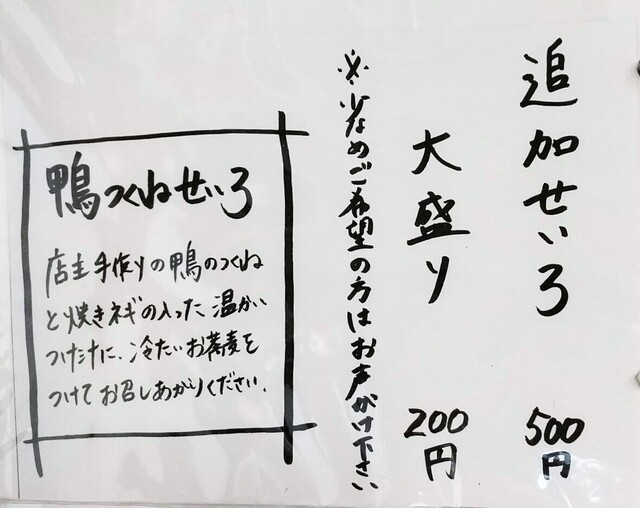 追加せいろ 500円
大盛り 200円
※少なめご希望の方はお声がけ下さい
鴨つくねせいろ
店主手作りの鴨のつくね
と焼きネギの入った温かい
つけ汁に、冷たいお蕎麦を
つけてお召しあがりください。